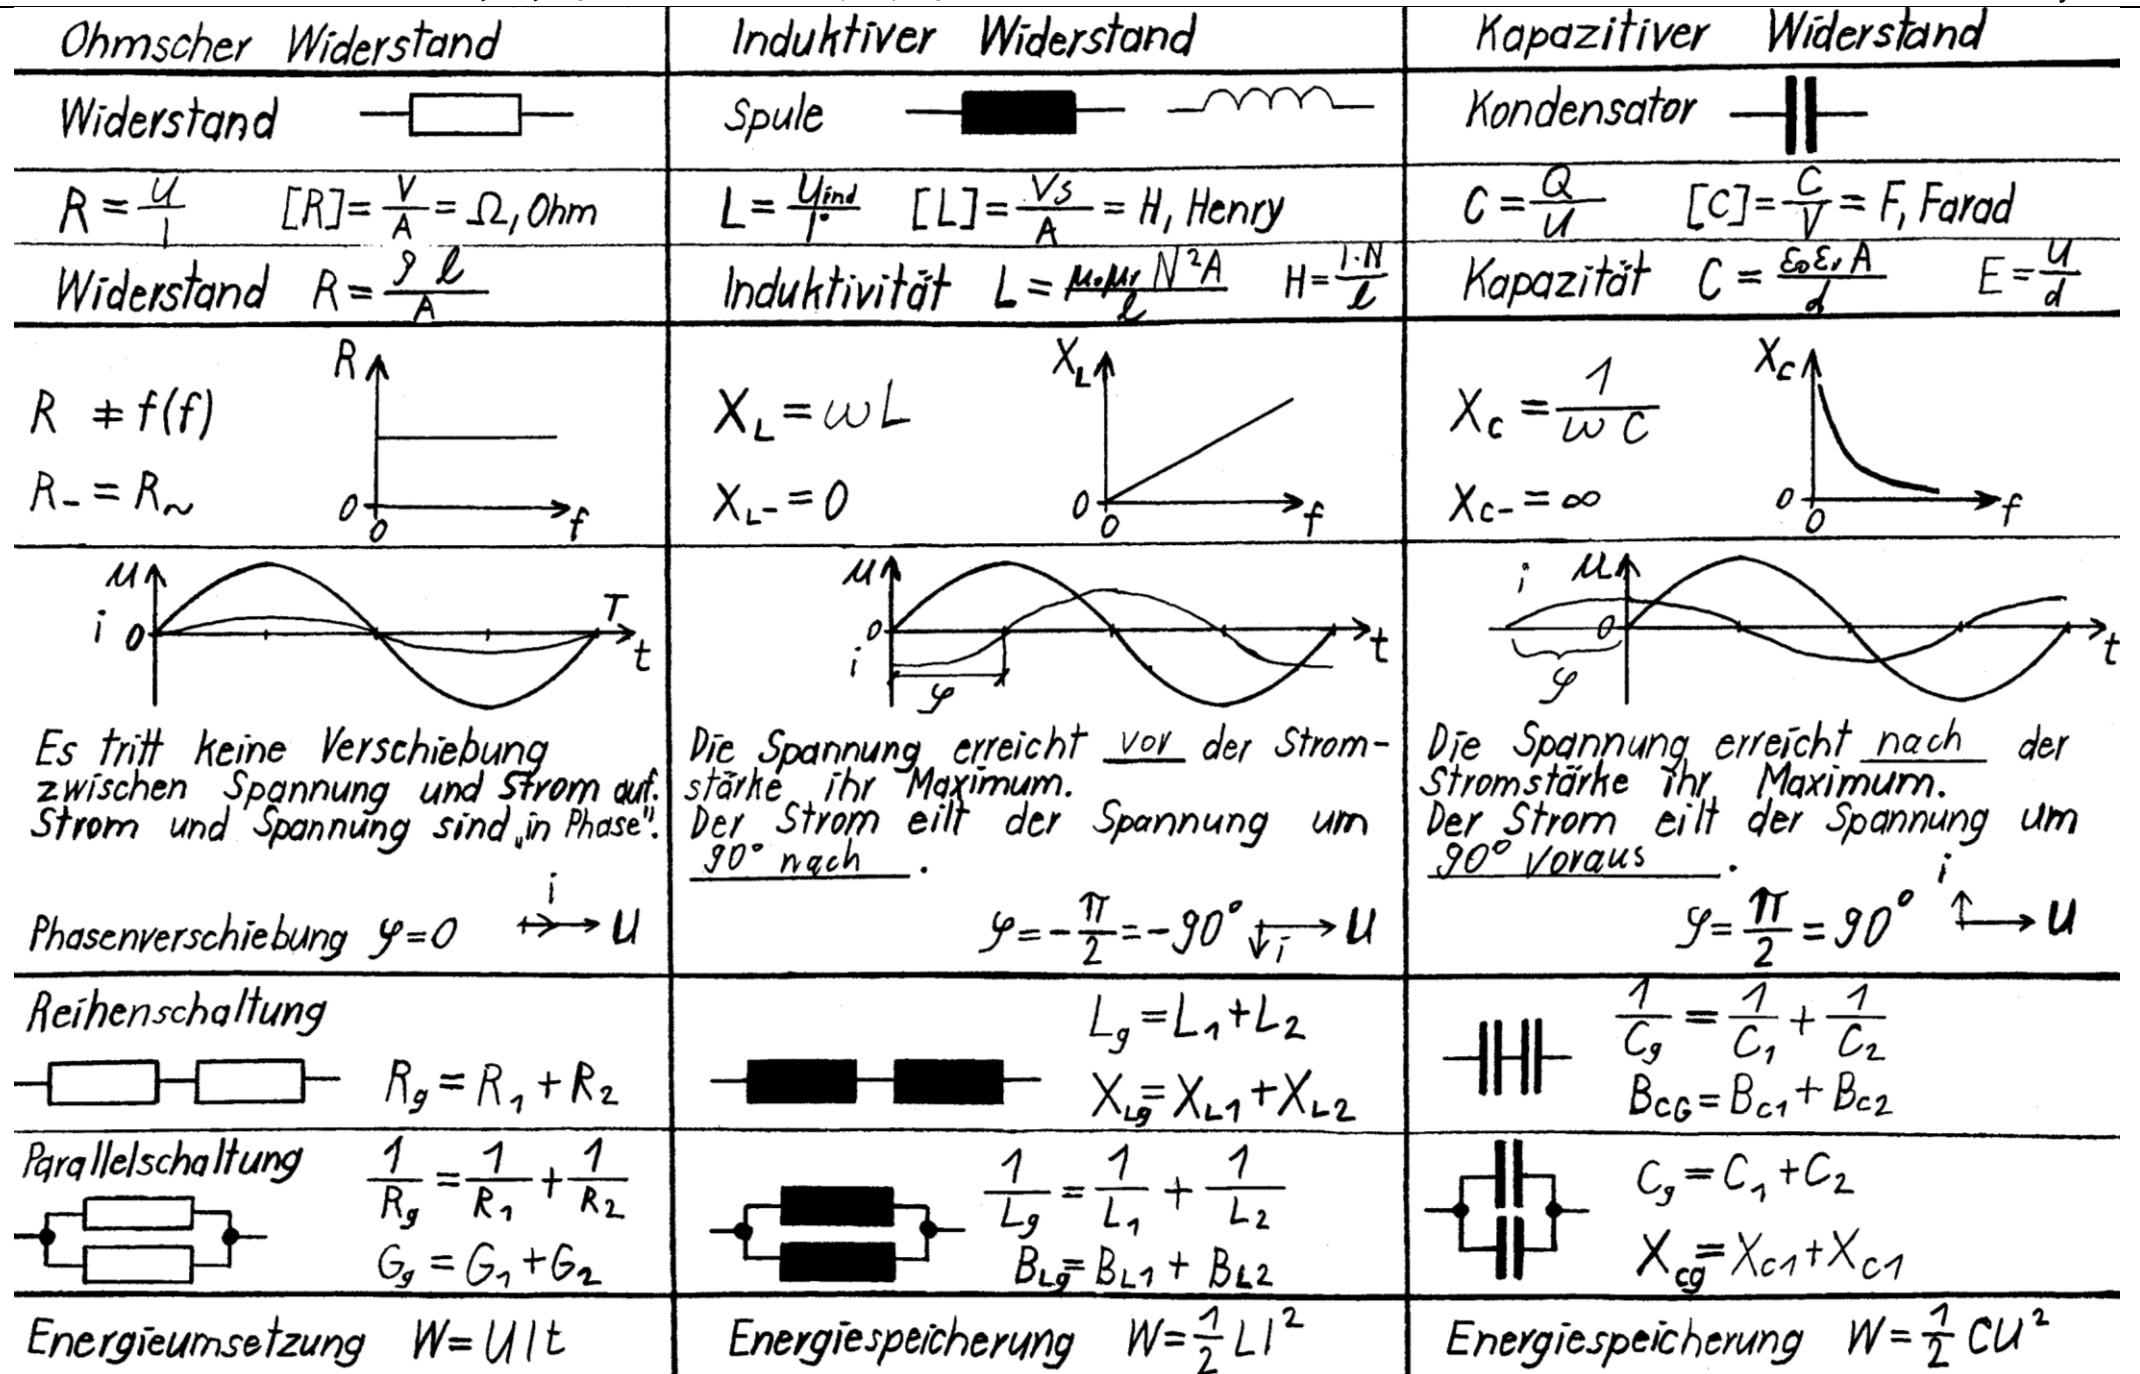 Ohmscher Widerstand
Induktiver Widerstand
Kapazitiver Widerstand
Widerstand
Spule
Kondensator
R = U/I [R] = V/A = Ω, Ohm
L = Uind/I° [L] = Vs/A = H, Henry
C = Q/U [C] = C/V = F, Farad
Widerstand R = ρ l/A
Induktivität L = μ₀μr N²A/l H = I·N/l
Kapazität C = ε₀εr A/d E = U/d
R ≠ f(f)
R- = R~
R
0
0
f
X_L = ωL
X_L- = 0
X_L
0
0
f
X_C = 1/ωC
X_C- = ∞
X_C
0
0
f
u
i 0
T
t
u
0
i
φ
t
i u
0
φ
t
Es tritt keine Verschiebung
zwischen Spannung und Strom auf.
Strom und Spannung sind „in Phase".
i
Phasenverschiebung φ=0 U
Die Spannung erreicht vor der Strom-
stärke ihr Maximum.
Der Strom eilt der Spannung um
90° nach.
φ = -π/2 = -90° U
i
Die Spannung erreicht nach der
Stromstärke ihr Maximum.
Der Strom eilt der Spannung um
90° voraus.
i
φ = π/2 = 90° U
Reihenschaltung
R_g = R_1 + R_2
L_g = L_1 + L_2
X_Lg = X_L1 + X_L2
1/C_g = 1/C_1 + 1/C_2
B_CG = B_C1 + B_C2
Parallelschaltung
1/R_g = 1/R_1 + 1/R_2
G_g = G_1 + G_2
1/L_g = 1/L_1 + 1/L_2
B_Lg = B_L1 + B_L2
C_g = C_1 + C_2
X_cg = X_C1 + X_C1
Energieumsetzung W = U I t
Energiespeicherung W = 1/2 LI²
Energiespeicherung W = 1/2 CU²